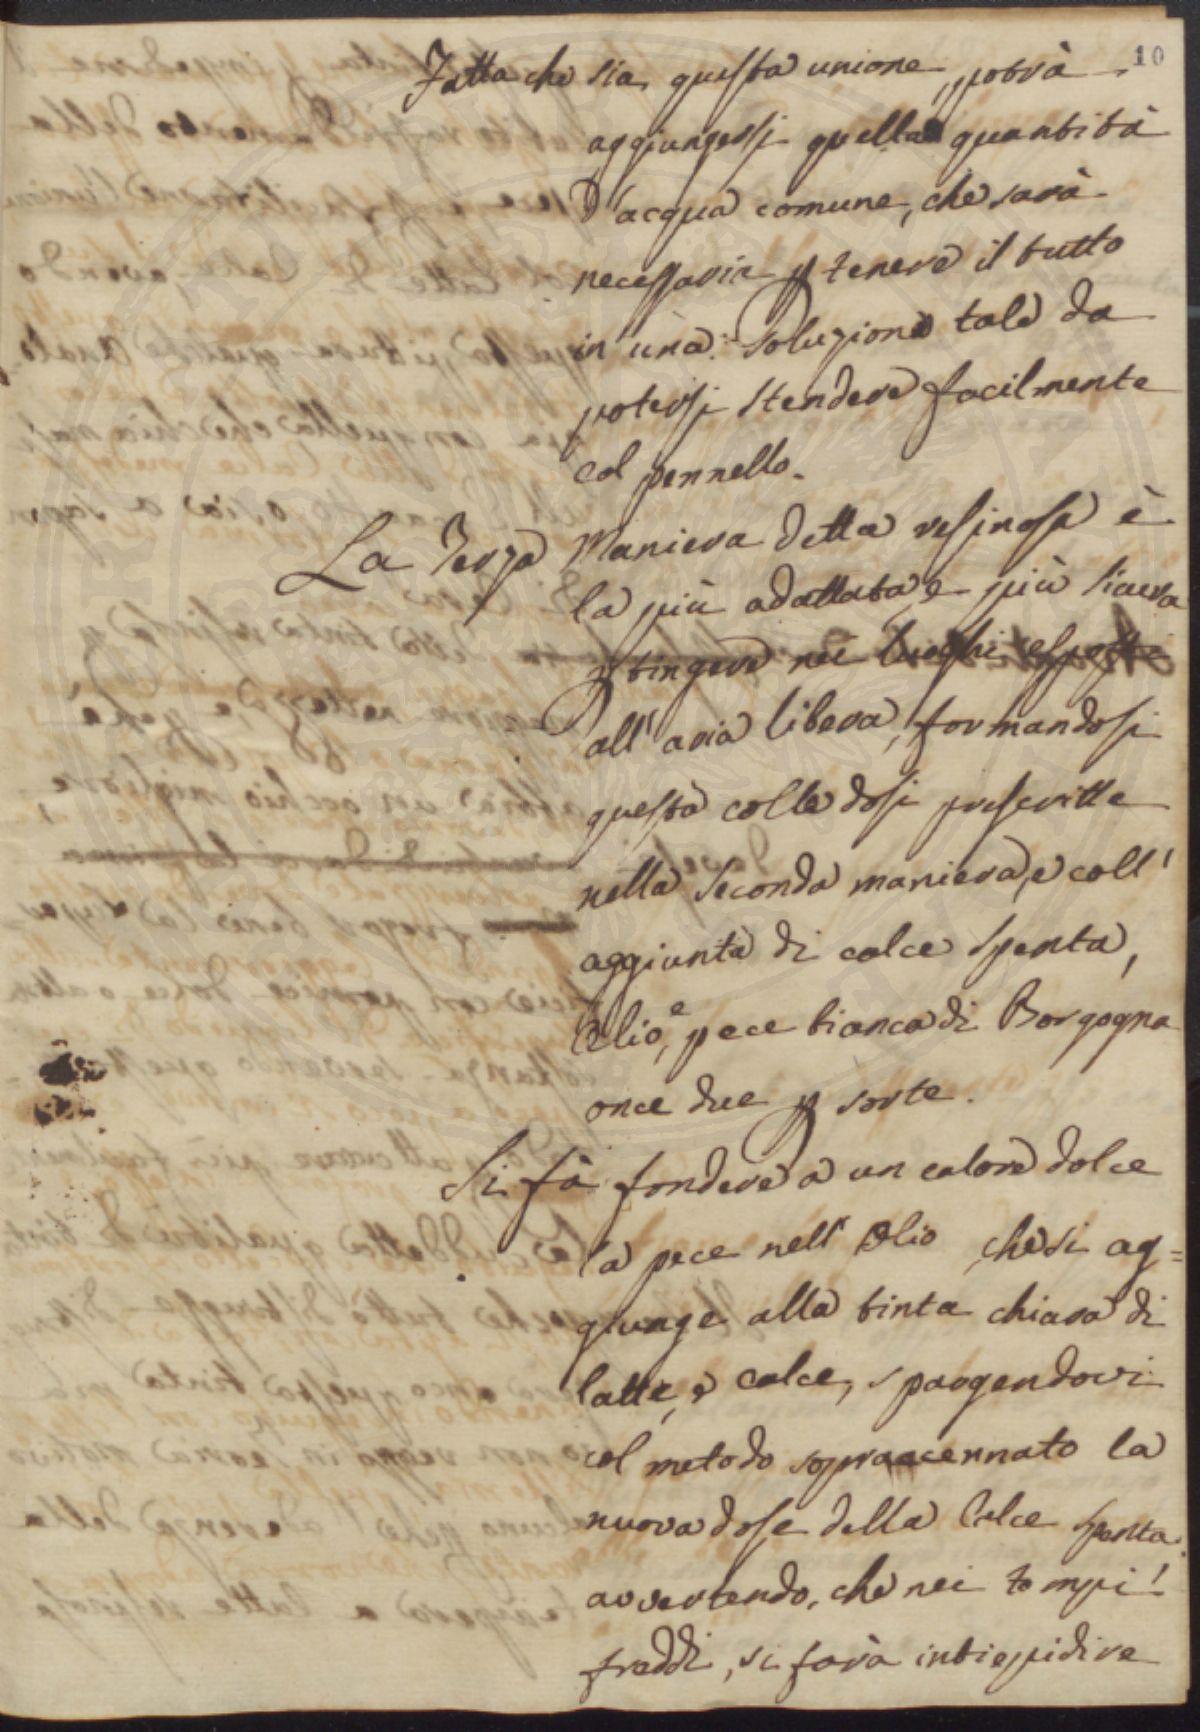 10
Fatta che sia questa unione, potrà
aggiungersi quella quantità
d'acqua comune, che sarà
necessaria p tenere il tutto
in una soluzione tale da
potersi stendere facilmente
col pennello.
La Terza Maniera detta resinosa è
la più adattata, e più sicura
p tingere nei luoghi esposti
all'aria libera, formandosi
questa colle dosi prescritte
nella seconda maniera, e coll'
aggiunta di calce spenta,
Olio, e pece bianca di Borgogna
once due p sorte.
Si fà fondere a un calore dolce
la pece nell'Olio, che si ag=
giunge alla tinta chiara di
latte, e calce, spargendovi
col metodo sopraacennato la
nuova dose della Calce spenta.
avvertendo, che nei tempi
freddi, si farà intiepidire